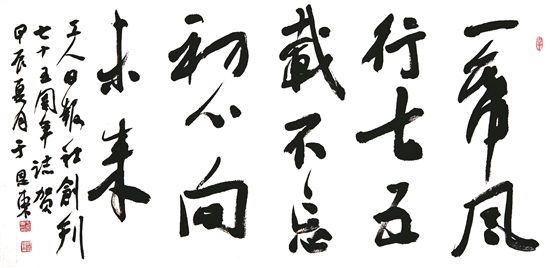 一帋风
行七五
載不忘
初心向
未来
工人日报社創刊
七十五周年誌贺
甲辰夏月于恩東